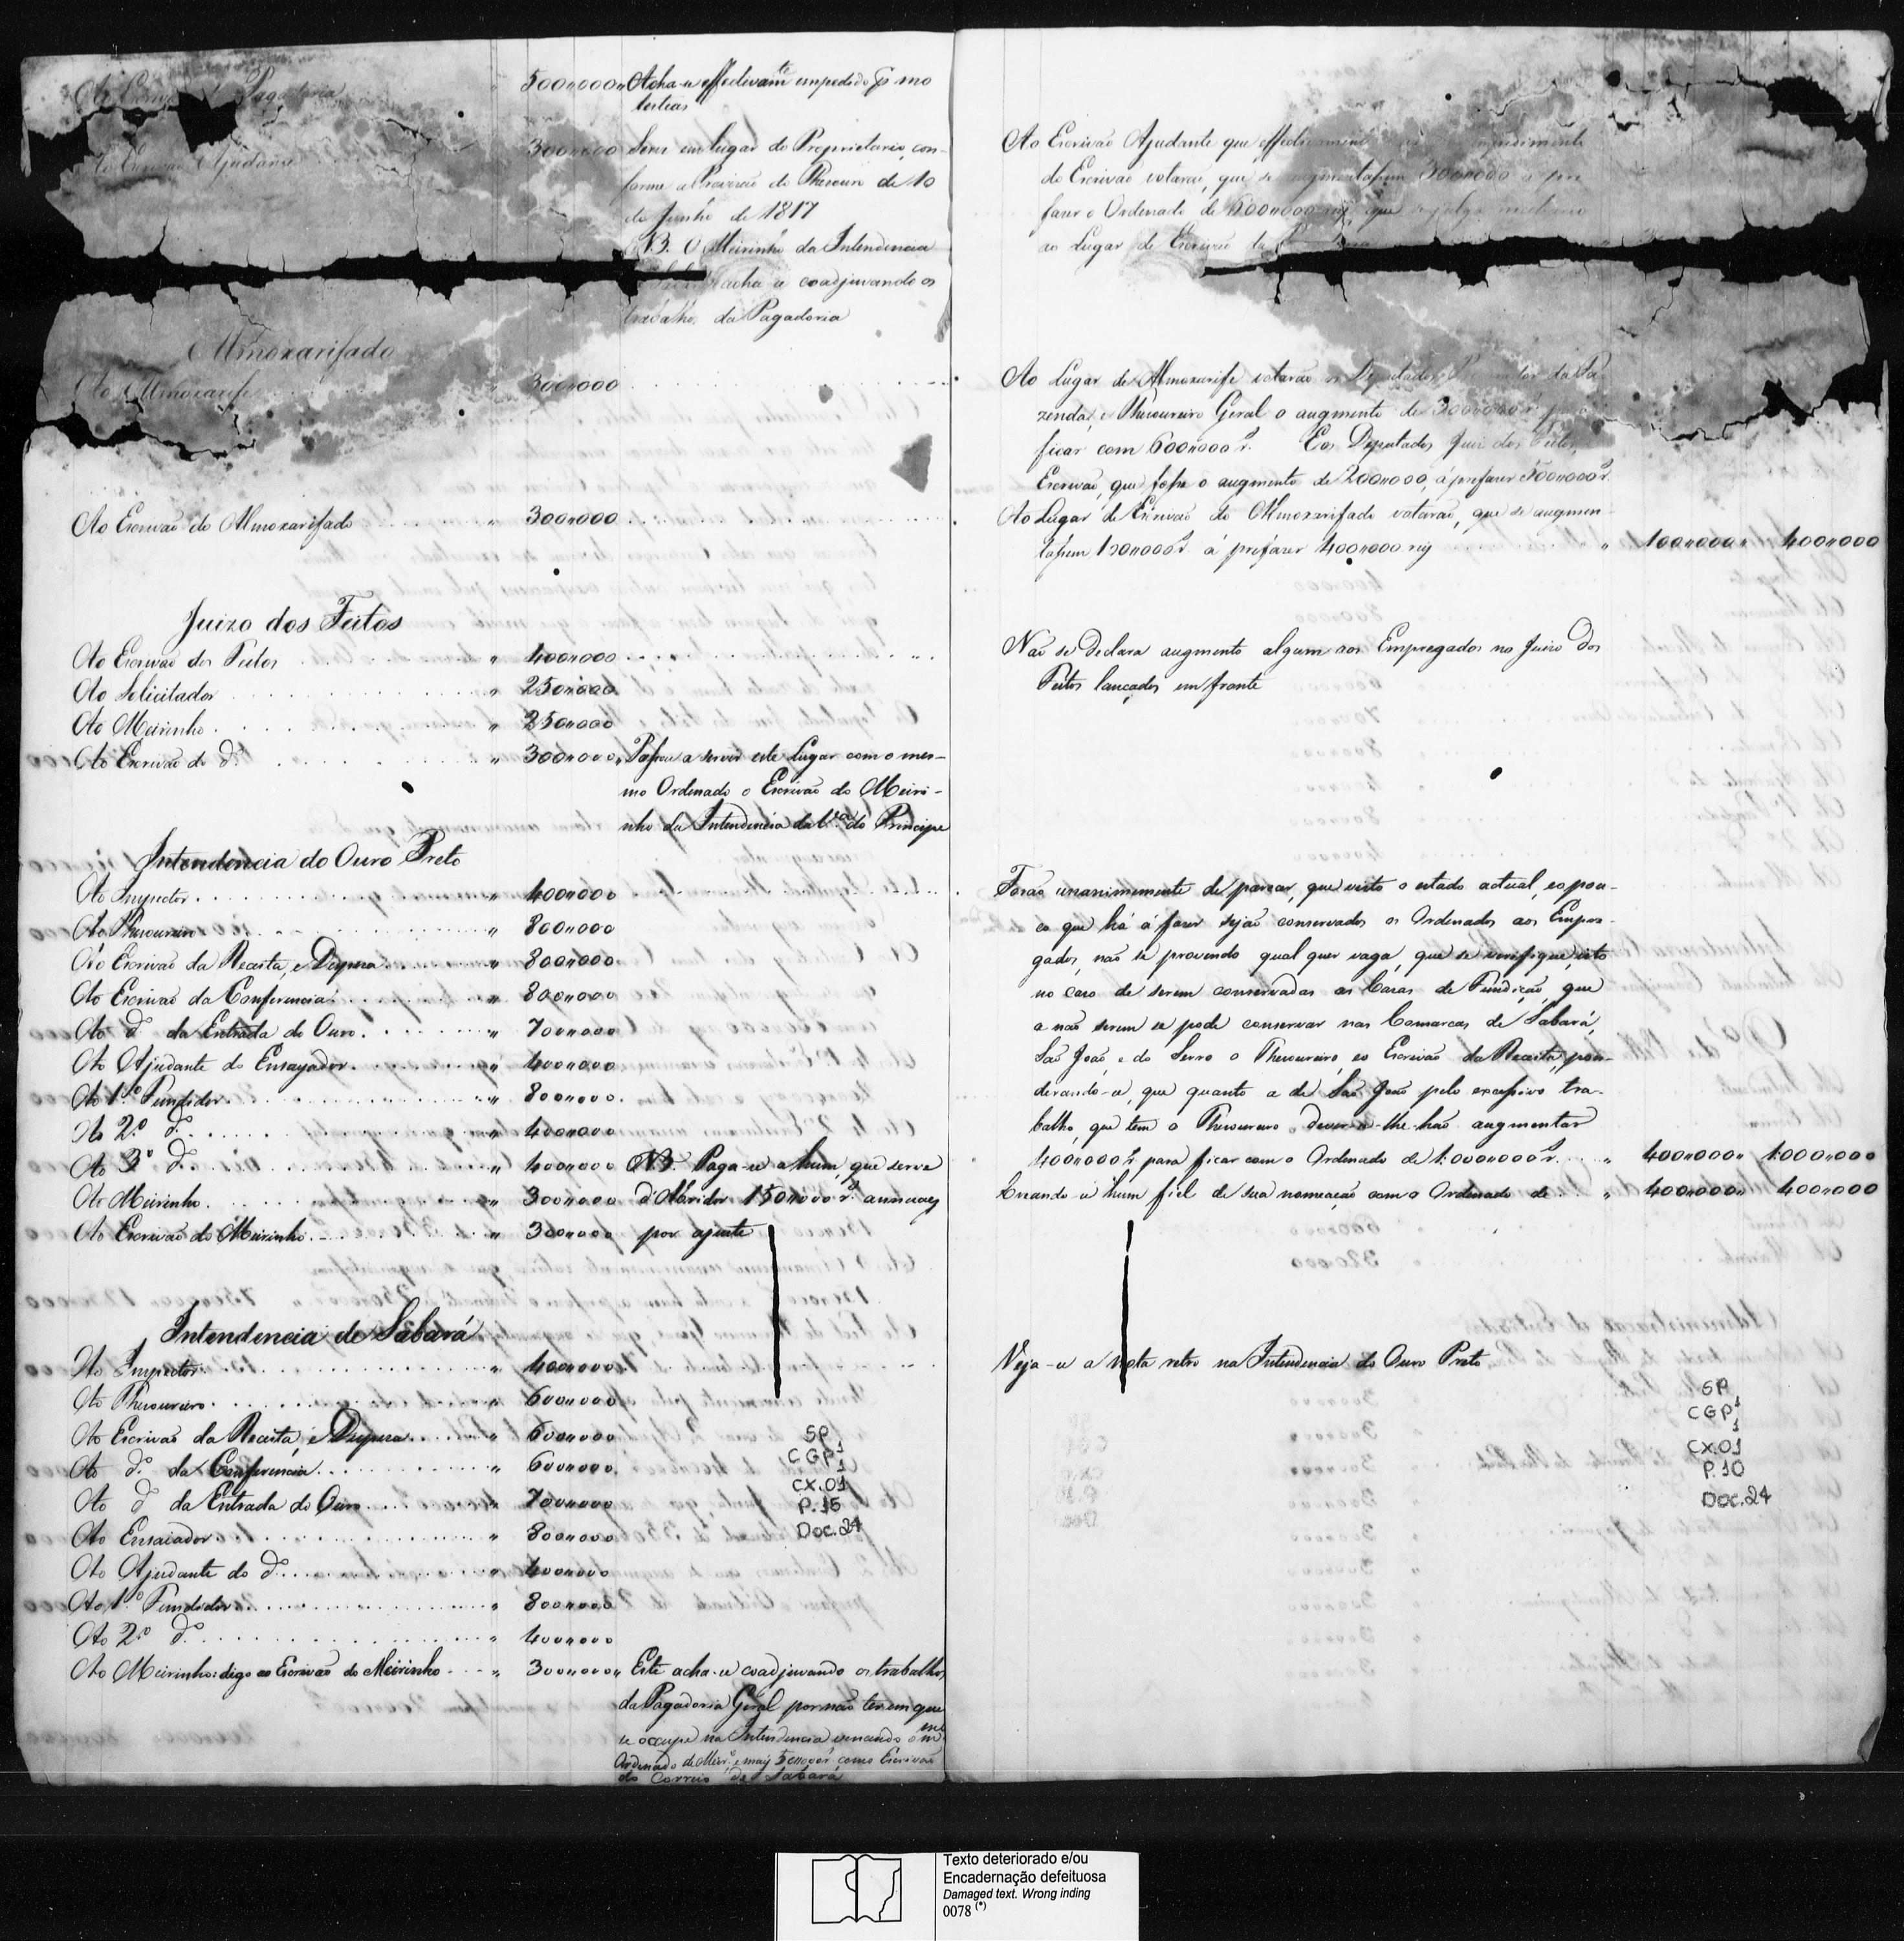 Ao Escrivão da Pagadoria 500"000 " Acha-se effectivam.te impedido p.r mo
lestias
Ao Escrivão Ajudante 300"000 Serve em lugar do Proprietario, con-
forme a Provizão do Thesouro de 10
de Junho de 1817
NB. O Meirinho da Intendencia
acha-se coadjuvando os
trabalhos da Pagadoria
Almoxarifado
Ao Almoxarife 300"000
Ao Escrivão do Almoxarifado " 300"000
Juizo dos Feitos
Ao Escrivão dos Feitos " 400"000
Ao Solicitador " 250"000
Ao Meirinho " 250"000
Ao Escrivão do d.º " 300"000 " Passou a servir este Lugar com o mes-
mo Ordenado o Escrivão do Meiri-
nho da Intendencia da V.ª do Principe
Intendencia do Ouro Preto
Ao Inspector " 400"000
Ao Thesoureiro " 800"000
Ao Escrivão da Receita, e Despeza " 800"000
Ao Escrivão da Conferencia " 800"000
Ao d.º da Entrada do Ouro " 700"000
Ao Ajudante do Ensayador " 400"000
Ao 1.º Fundidor " 800"000
Ao 2.º d.º " 400"000
Ao 3.º d.º " 400"000 NB. Paga-se a hum, que serve
Ao Meirinho " 300"000 d'Olaridor 150"000 r.s annuaes
Ao Escrivão do Meirinho " 300"000 por ajuste
Intendencia de Sabará
Ao Inspector " 400"000
Ao Thesoureiro " 600"000
Ao Escrivão da Receita, e Despeza " 600"000
Ao d.º da Conferencia " 600"000
Ao d.º da Entrada do Ouro " 700"000
Ao Ensaiador " 800"000
Ao Ajudante do d.º " 400"000
Ao 1.º Fundidor " 800"000
Ao 2.º d.º " 400"000
Ao Meirinho: digo ao Escrivão do Meirinho " 300"000 " Este acha-se coadjuvando os trabalhos
da Pagadoria Geral por não ter em que
se occupe na Intendencia vencendo o m.mo
Ordenado de Meir.º, e mais 50"000 r.s como Escrivão
do Correio de Sabará
SP
CGP 1
1
CX.01
P.15
Doc.24
Ao Escrivão Ajudante que effectivamente impedimento
do Escrivão votarão, que se augmentassem 300"000 a pre
fazer o Ordenado de 600"000 reis que se julga
ao Lugar de Escrivão da
Ao Lugar de Almoxarife votarão os Deputados Procurador da Fa
zenda, e Thesoureiro Geral o augmento de 300"000 r.s para
ficar com 600"000 r.s E os Deputados Juiz dos Feitos,
Escrivão, que fosse o augmento de 200"000, á prefazer 500"000 r.s
Ao Lugar de Escrivão do Almoxarifado votarão, que se augmen-
tassem 100"000 r.s á prefazer 400"000 reis " 100"000 " 400"000
Não se declara augmento algum aos Empregados no Juizo dos
Feitos lançados em fronte
Forão unanimemente de parecer, que visto o estado actual, eo pou-
co que há á fazer sejão conservados os Ordenados aos Empre-
gados, não se provendo qual quer vaga, que se verifique, isto
no caso de serem conservadas as Cazas de Fundição, que
a não serem se pode conservar nas Comarcas de Sabará,
São João, e do Serro o Thesoureiro, eo Escrivão da Receita, pon-
derando-se, que quanto a de São João pelo excessivo tra-
balho, que tem o Thesoureiro, dever-se-lhe-hão augmentar
400"000 r.s para ficar com o Ordenado de 1:000"000 r.s " 400"000 " 1:000"000
Creando-se hum fiel de sua nomeação com o Ordenado de " 400"000 " 400"000
Veja-se a nota retro na Intendencia do Ouro Preto
SP
CGP 1
1
CX.01
P.10
Doc.24
Texto deteriorado e/ou
Encadernação defeituosa
Damaged text. Wrong inding
0078 (*)